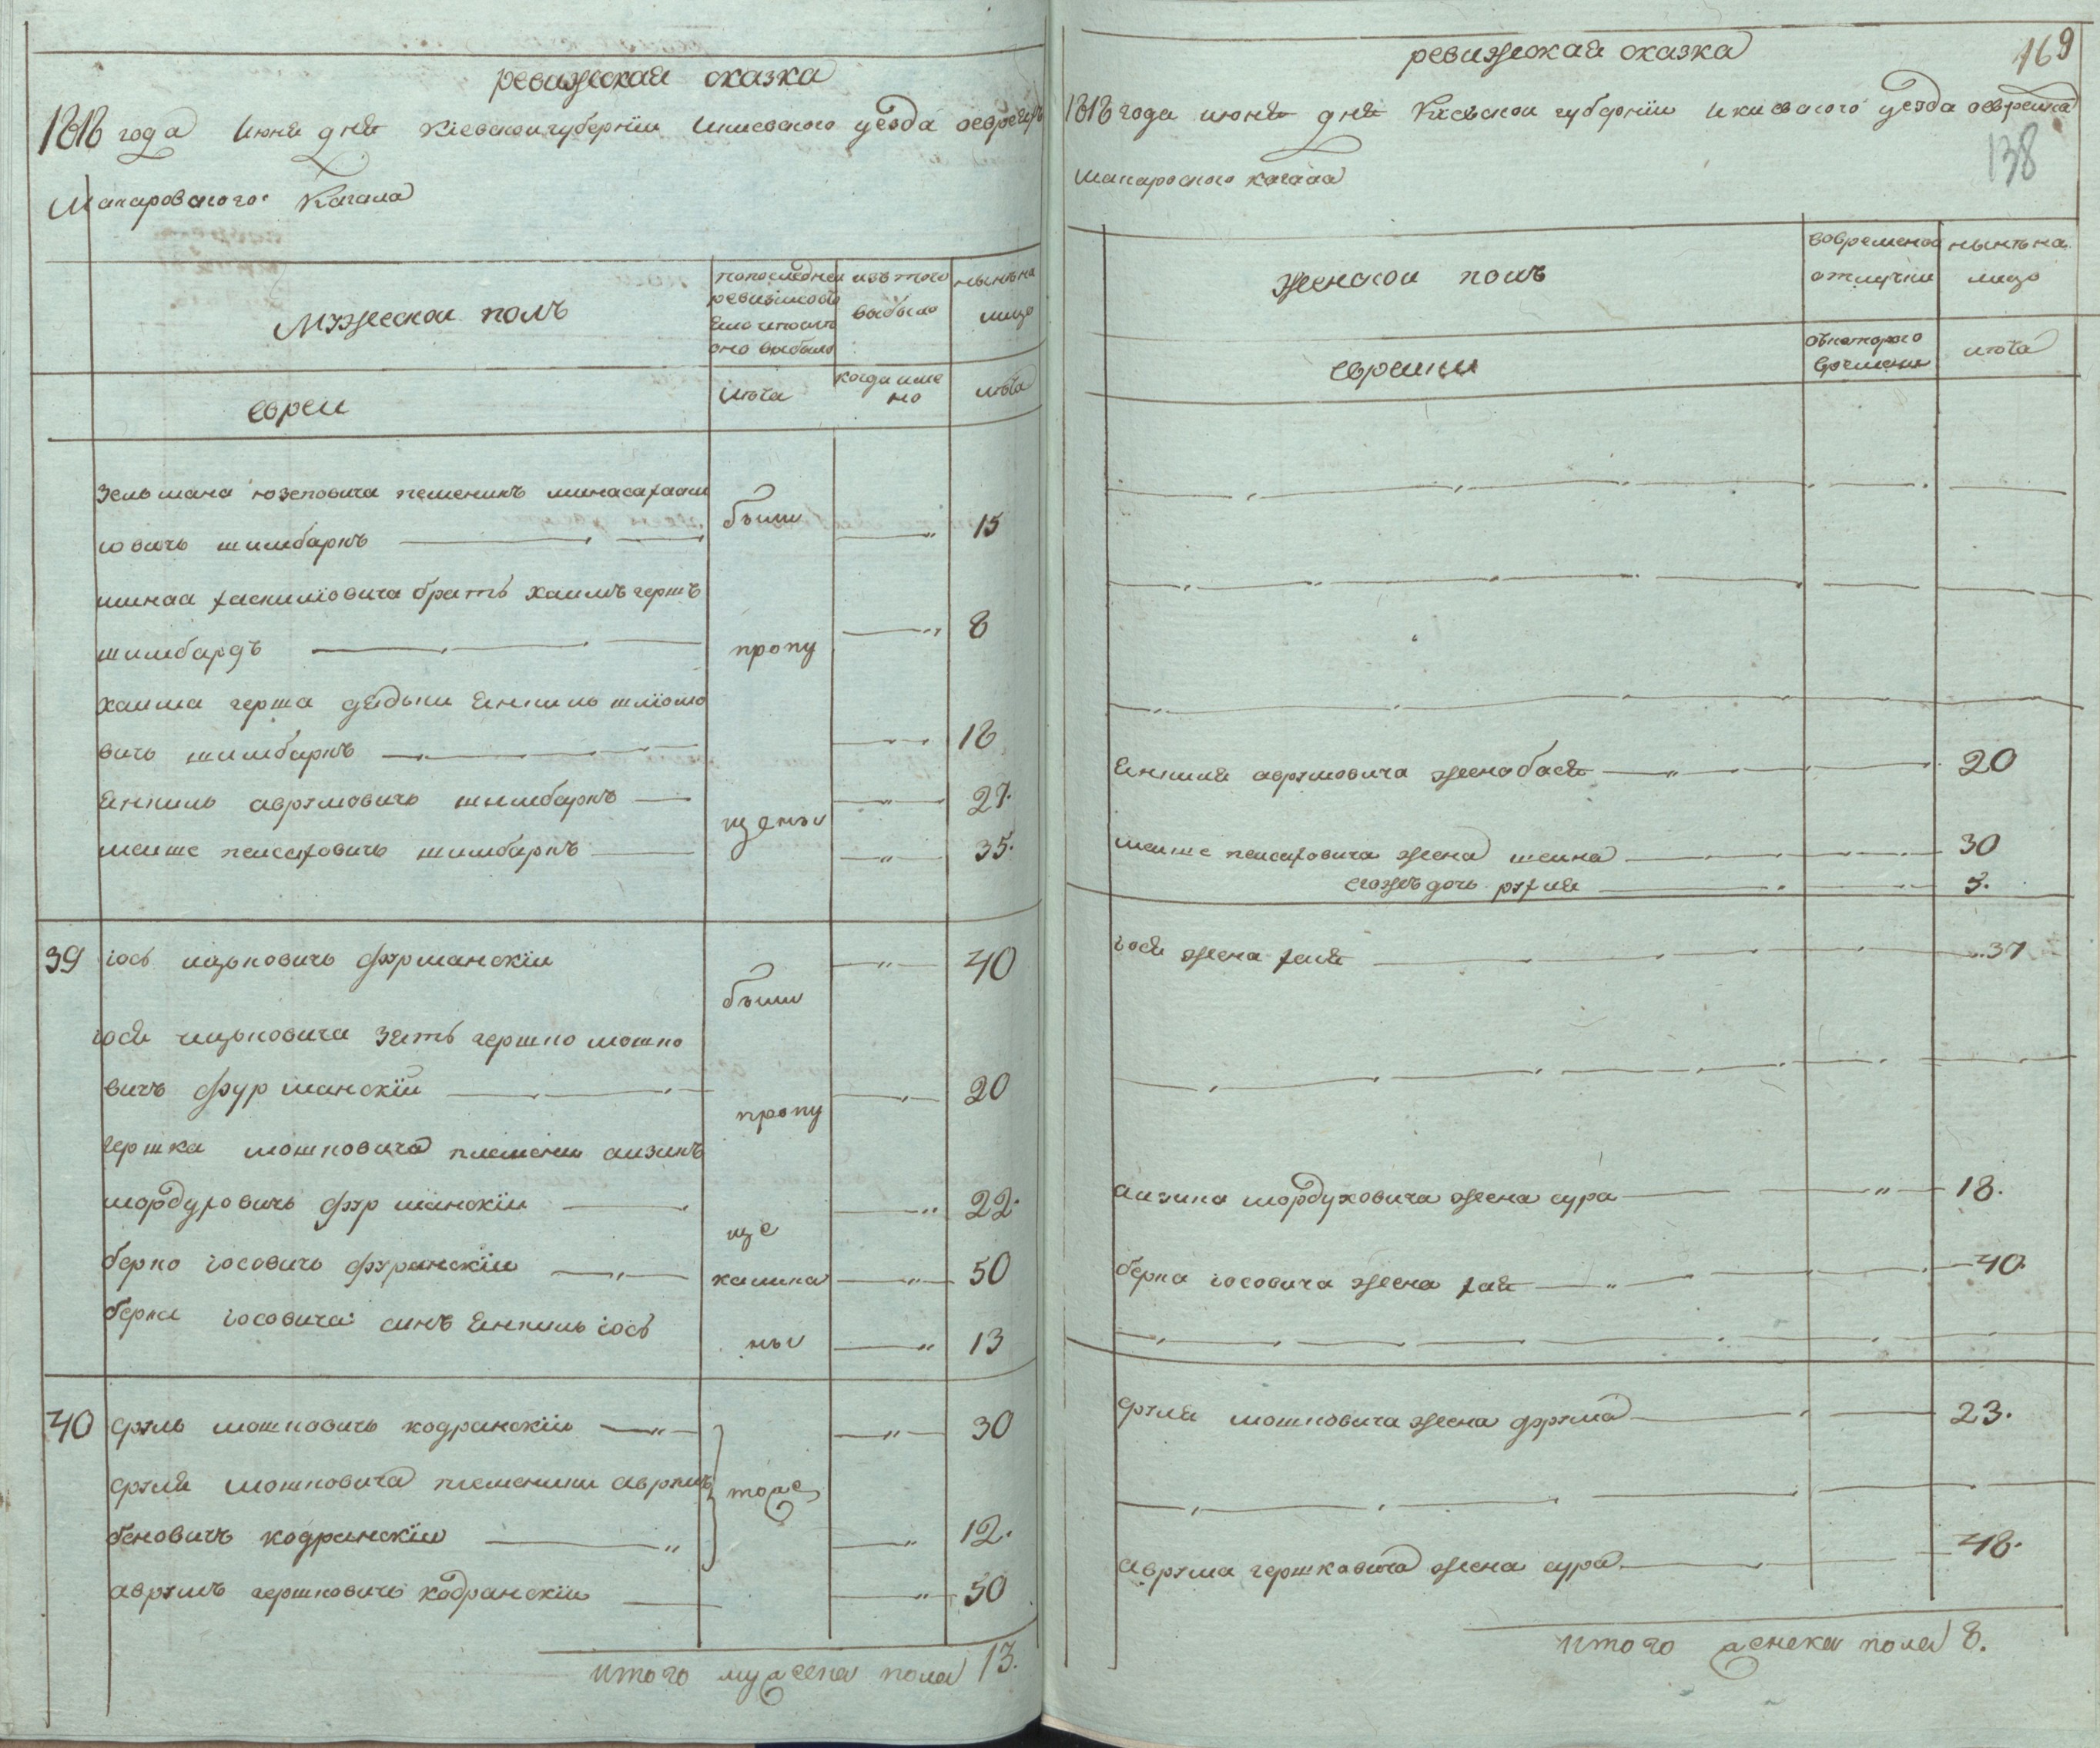 ревижская сказка
1818 года июня дня Кіевской губерніи и киевского уезда оевреяхъ
Макаровского Кагала
мужескои полъ
попоследнеи
ревизіисо
было
изъ того
выбыло
ныне на
лицо
евреи
лета
когда име
но
лета
Зельмана юзеповича племеникъ
овичь шимбаркъ
были
15
брать хаимъ гершъ
шимбардъ
пропу
8
хаима герша дядьки Янкиль шліомо
вичь шимбаркъ
18
Янкиль аврумовичь шимбаркъ
27.
щены
меише пеисаховичь шимбаркъ
35.
39 іось ицковичь фурманскіи
40
были
іося ицковича зять гершко мошко
вичъ фурманскіи
20
пропу
гершка мошковича племени аизикъ
мордуховичь фурманскіи
22.
ще
берко іосовичь фурманскіи
50
берка іосовича синъ Янкиль іось
ны
13
40 сруль мошковичь кодранскіи
30
сруля мошковича племеники аврумъ
тоже
беновичъ кодранскіи
12.
аврумъ гершковичь кодранскіи
50
итого мужеска пола 13.
ревижская сказка
169
1818 года июня дня Киевскои губерніи и киевского уезда оевреяхъ
138
Макаровского кагала
женскои полъ
вовременои
отлучки
ныне на
лицо
еврейки
съкоторого
времени
лета
Янкиля аврумовича жена бася
20
меише пеисаховича жена шеина
30
егожъ дочь рухля
5.
іося жена хая
37
аизика мордуховича жена сура
18.
берка іосовича жена хая
40.
сруля мошковича жена фрума
23.
аврума гершковича жена сура
48.
итого женска пола 8.